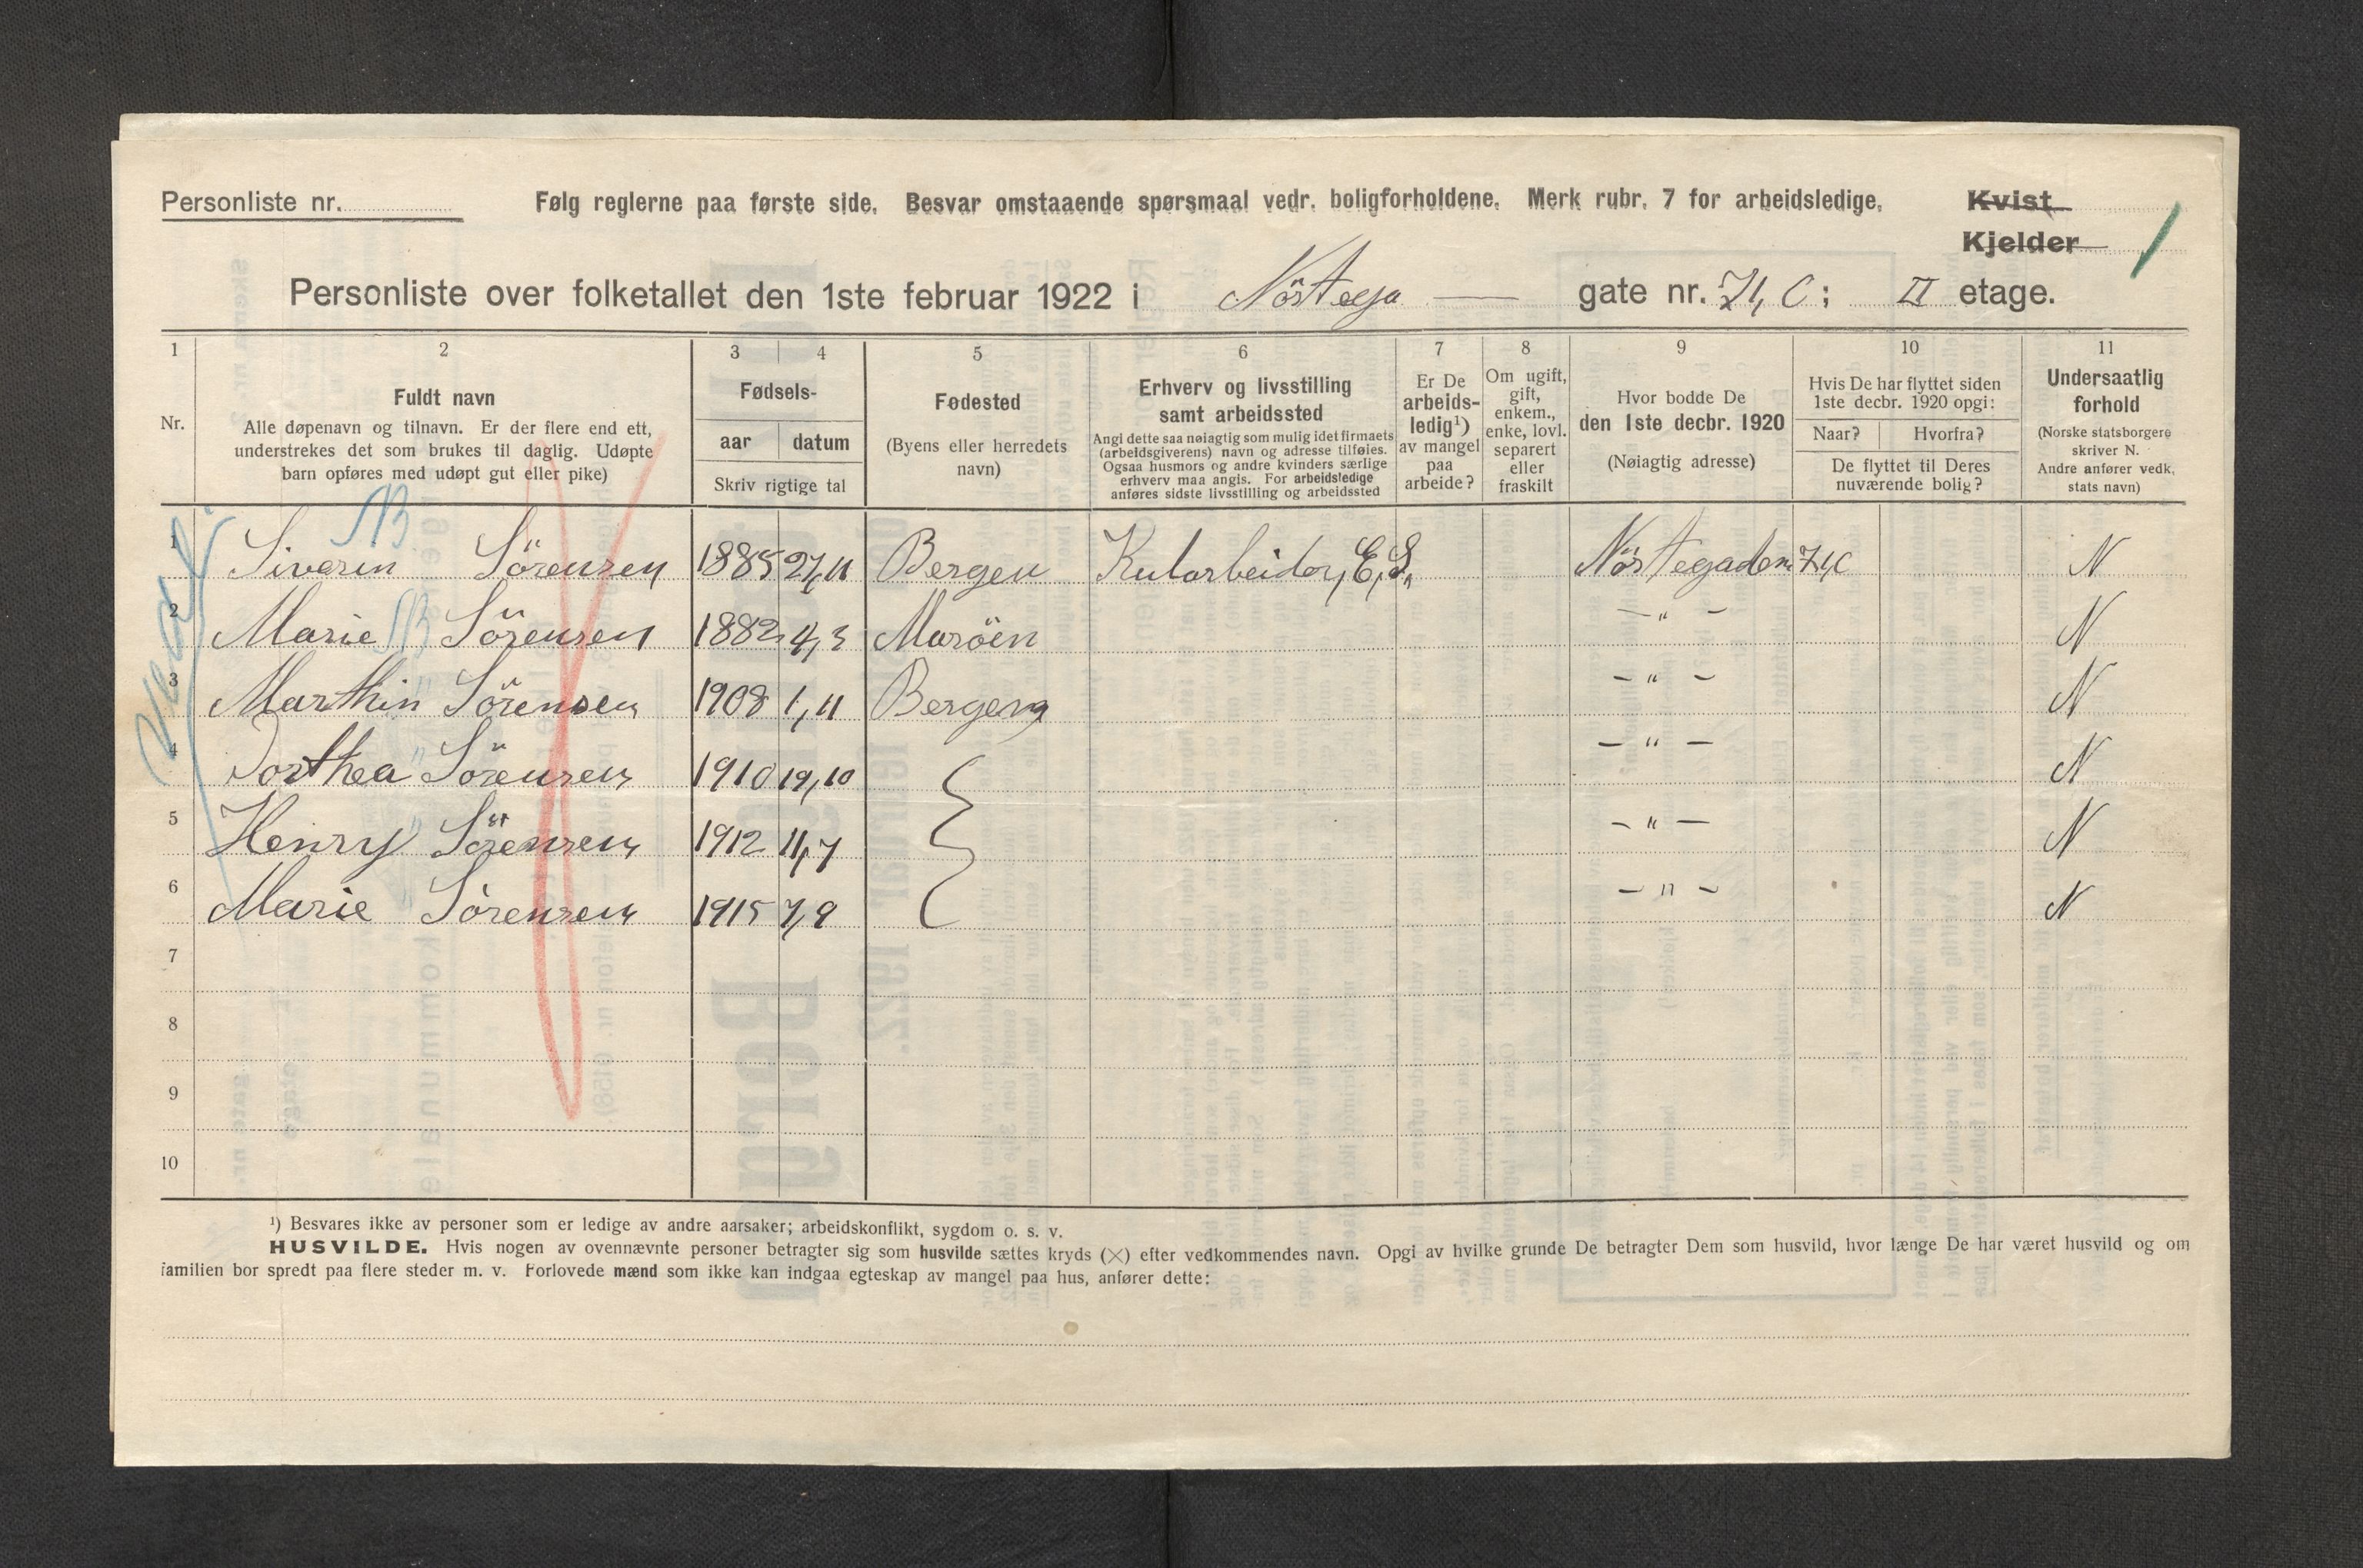 Personliste nr.
Følg reglerne paa første side. Besvar omstaaende spørsmaal vedr. boligforholdene. Merk rubr. 7 for arbeidsledige.
Kvist
Kjelder
Personliste over folketallet den 1ste februar 1922 i Nöstega gate nr. 71, C; II etage.
1 2 3 4 5 6 7 8 9 10 11
Nr.
Fuldt navn
Alle døpenavn og tilnavn. Er der flere end ett,
understrekes det som brukes til daglig. Udøpte
barn opføres med udøpt gut eller pike)
Fødsels-
aar datum
Skriv rigtige tal
Fødested
(Byens eller herredets
navn)
Erhverv og livsstilling
samt arbeidssted
Angi dette saa nøiagtig som mulig idet firmaets
(arbeidsgiverens) navn og adresse tilføies.
Ogsaa husmors og andre kvinders særlige
erhverv maa angis. For arbeidsledige
anføres sidste livsstilling og arbeidssted
Er De
arbeids-
ledig¹)
av mangel
paa
arbeide?
Om ugift,
gift,
enkem.,
enke, lovl.
separert
eller
fraskilt
Hvor bodde De
den 1ste decbr. 1920
(Nøiagtig adresse)
Hvis De har flyttet siden
1ste decbr. 1920 opgi:
Naar? Hvorfra?
De flyttet til Deres
nuværende bolig?
Undersaatlig
forhold
(Norske statsborgere
skriver N.
Andre anfører vedk.
stats navn)
1 Siverin Sörensen 1885 27,11 Bergen Kularbeider, E, S, Nöstegaden 71,C N
2 Marie Sörensen 1882 4,3 Maröen — " — N
3 Marthin Sörensen 1908 1,11 Bergen — " — N
4 Dorthea Sörensen 1910 19,10 — " — N
5 Henry Sörensen 1912 11,7 — " — N
6 Marie Sörensen 1915 7,9 — " — N
7
8
9
10
¹) Besvares ikke av personer som er ledige av andre aarsaker; arbeidskonflikt, sygdom o. s. v.
HUSVILDE. Hvis nogen av ovennævnte personer betragter sig som husvilde sættes kryds (×) efter vedkommendes navn. Opgi av hvilke grunde De betragter Dem som husvild, hvor længe De har været husvild og om
familien bor spredt paa flere steder m. v. Forlovede mænd som ikke kan indgaa egteskap av mangel paa hus, anfører dette: